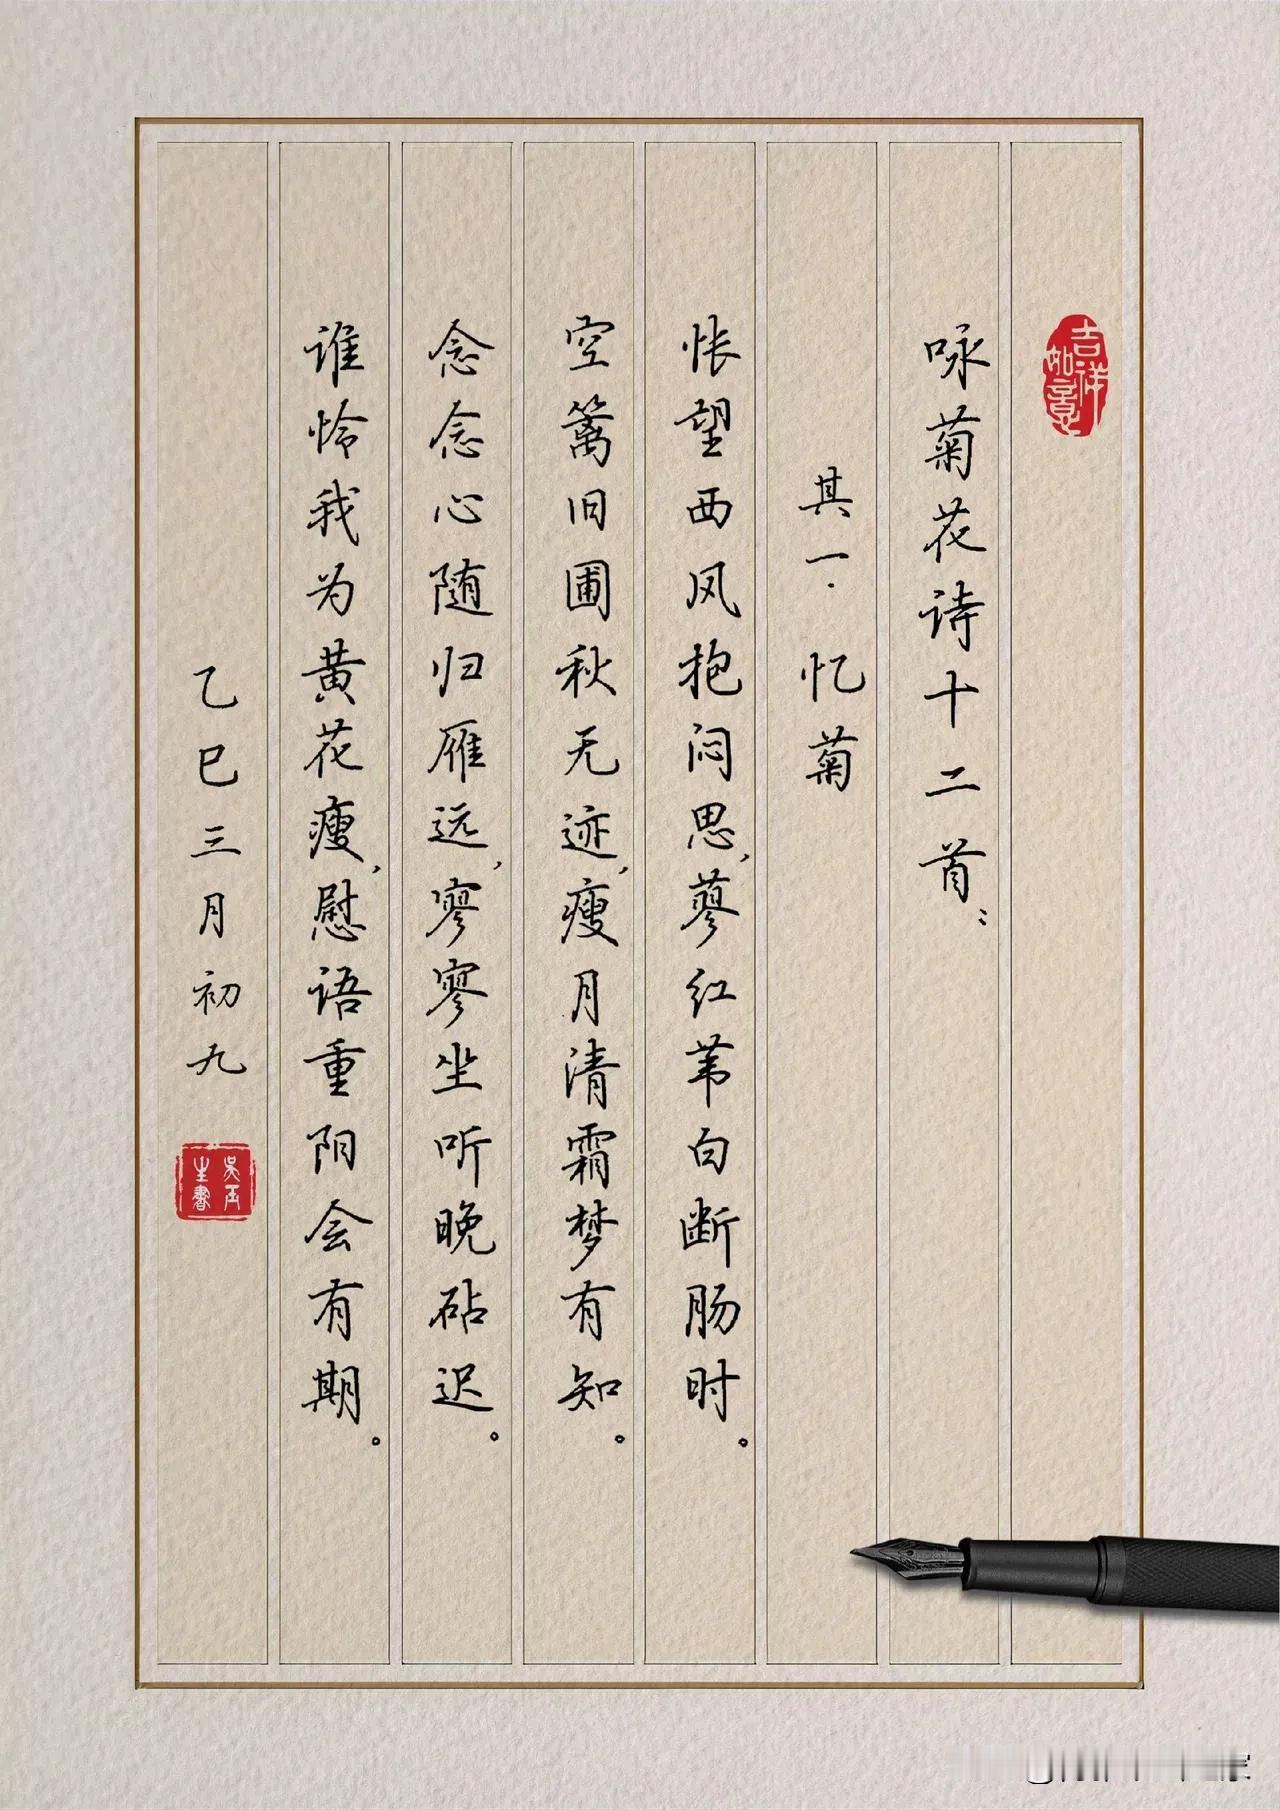 吉祥如意
咏菊花诗十二首：
其一·忆菊
怅望西风抱闷思，蓼红苇白断肠时。
空篱旧圃秋无迹，瘦月清霜梦有知。
念念心随归雁远，寥寥坐听晚砧迟。
谁怜我为黄花瘦，慰语重阳会有期。
乙巳三月初九